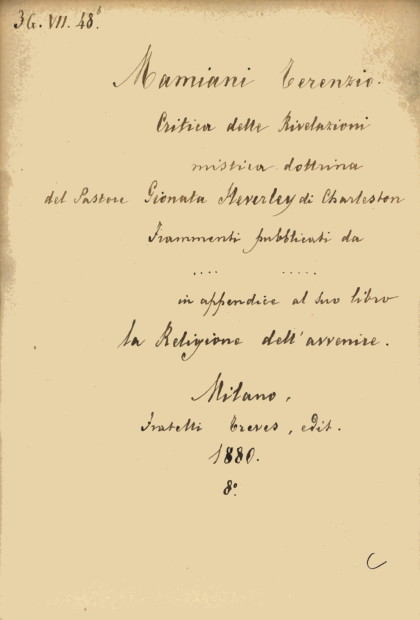 36. VII. 48.6
Mamiani Terenzio.
Critica delle Rivelazioni
mistica dottrina
del Pastore Gionata Heverley di Charleston
Frammenti pubblicati da
.... .....
in appendice al suo libro
la Religione dell'avvenire.
Milano,
Fratelli Treves, edit.
1880.
8º.
C